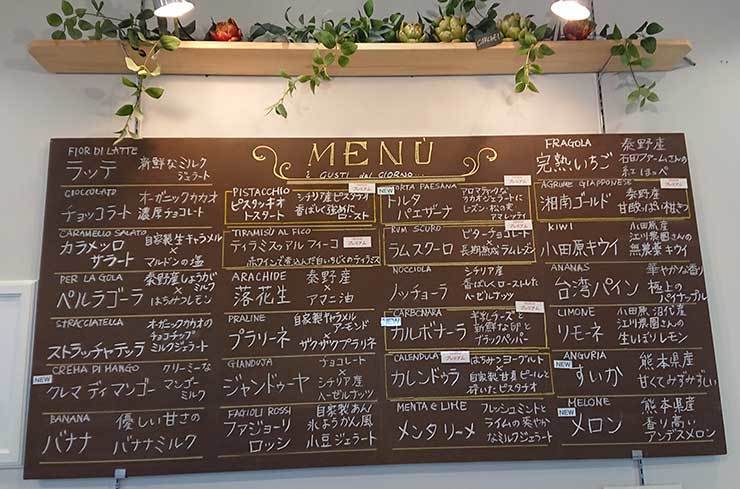 MENÙ
i GUSTI del GIORNO...
FIOR DI LATTE
ラッテ
新鮮なミルク
ジェラート
CIOCCOLATO
チョコラート
オーガニックカカオ
濃厚チョコレート
CARAMELLO SALATO
カラメッロ
サラート
自家製生キャラメル
×
マルドンの塩
PER LA GOLA
ペルラゴーラ
秦野産しょうが
ミルク
はちみつレモン
STRACCIATELLA
ストラッチャテッラ
オーガニックカカオの
チョコチップ
ミルクジェラート
NEW
CREMA DI MANGO
クレマ ディ マンゴー
クリーミーな
マンゴー
ミルク
BANANA
バナナ
優しい甘さの
バナナミルク
PISTACCHIO
ピスタッキオ
トスタート
プレミアム
シチリア産ピスタチオ
香ばしく強めに
ロースト
TIRAMISU AL FICO
ティラミスゥ アル フィーコ
プレミアム
赤ワインで煮込んだ白いちじくのティラミス
ARACHIDE
落花生
秦野産
×
アマニ油
PRALINE
プラリーネ
自家製キャラメル
アーモンド
×
ザクザクプラリネ
GIANDUJA
ジャンドゥーヤ
チョコレート
×
シチリア産
ヘーゼルナッツ
FAGIOLI ROSSI
ファジョーリ
ロッシ
自家製あん
氷ようかん風
小豆ジェラート
NEW
TORTA PAESANA
トルタ
パエザーナ
プレミアム
アロマティックな
カカオジェラートに
レーズン・松の実
アマレッティ
RUM SCURO
ラムスクーロ
プレミアム
ビターチョコレート
×
長期熟成ラムレーズン
NOCCIOLA
ノッチョーラ
シチリア産
香ばしくローストした
ヘーゼルナッツ
CARBONARA
NEW
カルボナーラ
プレミアム
羊乳チーズ
新鮮な卵と
ブラックペパー
CALENDULA
カレンドゥラ
プレミアム
はちみつヨーグルト
自家製甘夏ピールと
砕いたピスタチオ
MENTA e LIME
メンタ リーメ
フレッシュミントと
ライムの爽やか
なミルクジェラート
FRAGOLA
完熟いちご
秦野産
石田ファームさんの
紅ほっぺ
AGRUME GIAPPONESE
湘南ゴールド
プレミアム
秦野産
甘酸っぱい柑きつ
KIWI
小田原キウイ
小田原産
江川果園さんの
無農薬キウイ
ANANAS
台湾パイン
華やかな香り
極上の
パイナップル
LIMONE
リモーネ
小田原 沼代産
江川果園さんの
生しぼりレモン
ANGURIA
NEW
すいか
熊本県産
甘くてみずみずしい
MELONE
NEW
メロン
熊本県産
香り高い
アンデスメロン